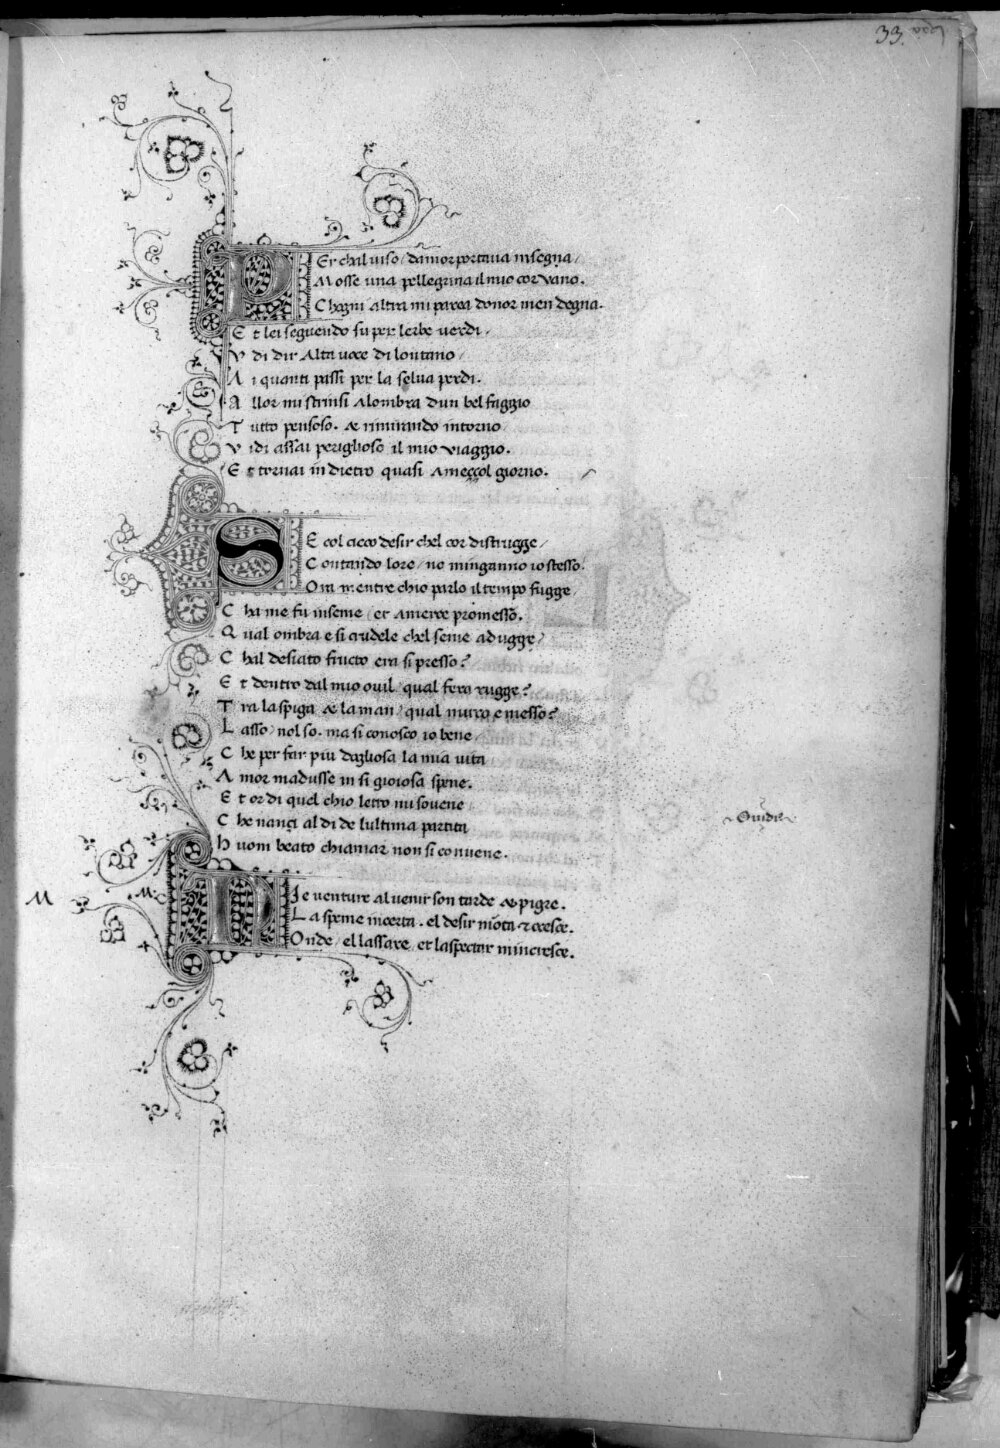 33.
PEr chal uiso / damor portaua insegna /
Mosse una pellegrina il mio cor vano.
Chogni altra mi parea donor men degna.
Et lei seguendo su per lerbe uerdi /
Vdi dir alta uoce di lontano /
Ai quanti passi per la selua perdi.
Allor mi strinsi alombra dun bel faggio
Tutto pensoso. & rimirando intorno
Vidi assai periglioso il mio viaggio.
Et tornai indietro quasi ameççol giorno.
SE col cieco desir chel cor distrugge /
Contando lore / no minganno io stesso.
Ora mentre chio parlo il tempo fugge /
Cha me fu inseme / et amerce promesso.
Qual ombra e si crudele chel seme adugge /
Chal desiato fructo era si presso?
Et dentro dal mio ouil / qual fera rugge?
Tra la spiga & la man / qual muro e messo?
Lasso / nol so. ma si conosco io bene
Che per far piu dogliosa la mia uita
Amor madusse in si gioiosa spene.
Et or di quel chio letto mi souene
Che nançi al di de lultima partita
Huom beato chiamar non si conuene.
Ouidi
M
M
MIe venture al uenir son tarde & pigre.
La speme incerta. el desir mōta & cresce.
Onde / el lassare, et laspectar mincresce.